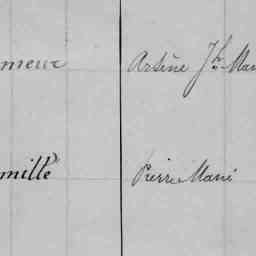 meur Arsène Jh. Mar
mille Pierre Marie